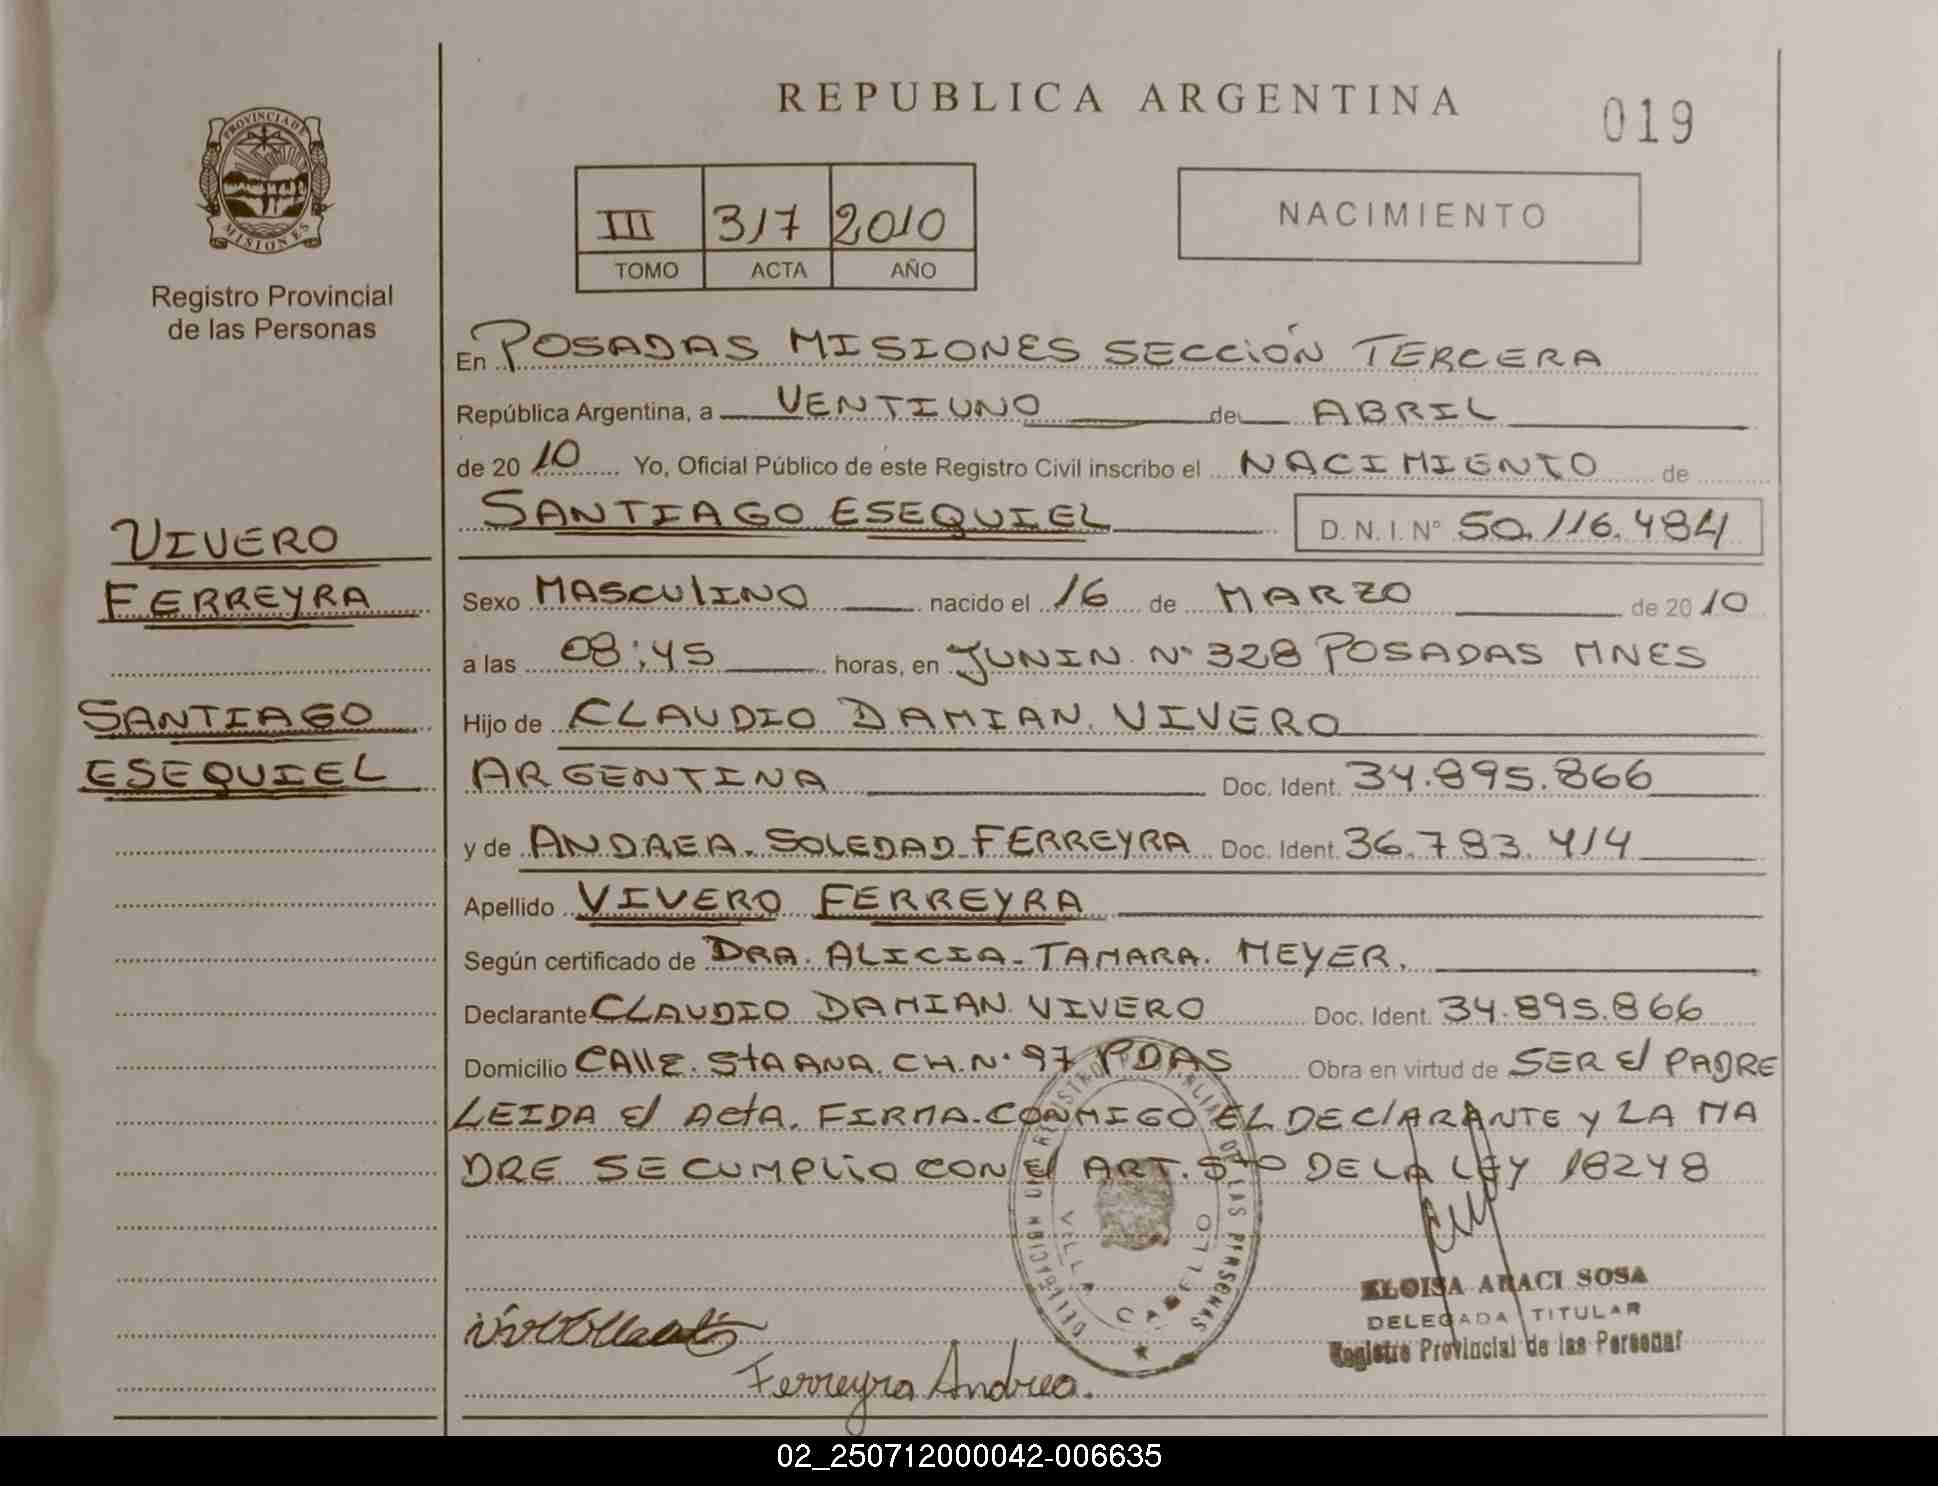 REPUBLICA ARGENTINA
019
PROVINCIA DE
MISIONES
Registro Provincial
de las Personas
III 317 2010
TOMO ACTA AÑO
NACIMIENTO
En POSADAS MISIONES SECCIÓN TERCERA
República Argentina, a VENTIUNO de ABRIL
de 2010 Yo, Oficial Público de este Registro Civil inscribo el NACIMIENTO de
SANTIAGO ESEQUIEL D.N.I.Nº 50.116.484
VIVERO
FERREYRA
SANTIAGO
ESEQUIEL
Sexo MASCULINO nacido el 16 de MARZO de 2010
a las 08:45 horas, en JUNIN Nº 328 POSADAS MNES
Hijo de CLAUDIO DAMIAN VIVERO
ARGENTINA Doc. Ident. 34.895.866
y de ANDREA SOLEDAD FERREYRA Doc. Ident. 36.783.414
Apellido VIVERO FERREYRA
Según certificado de DRA. ALICIA TAMARA MEYER.
Declarante CLAUDIO DAMIAN VIVERO Doc. Ident. 34.895.866
Domicilio CALLE. STA ANA. CH. Nº 97 PDAS Obra en virtud de SER El PADRE
LEIDA El ActA. FIRMA CONMIGO EL DEClARANTE y LA MA
DRE SE CUMPLIO CON El ART. 5to DE LA LEY 18248
DELEGACION DEL REGISTRO DE LAS PERSONAS
VILLA CABELLO
ELOISA ARACI SOSA
DELEGADA TITULAR
Registro Provincial de las Personas
Ferreyra Andrea.
02_250712000042-006635